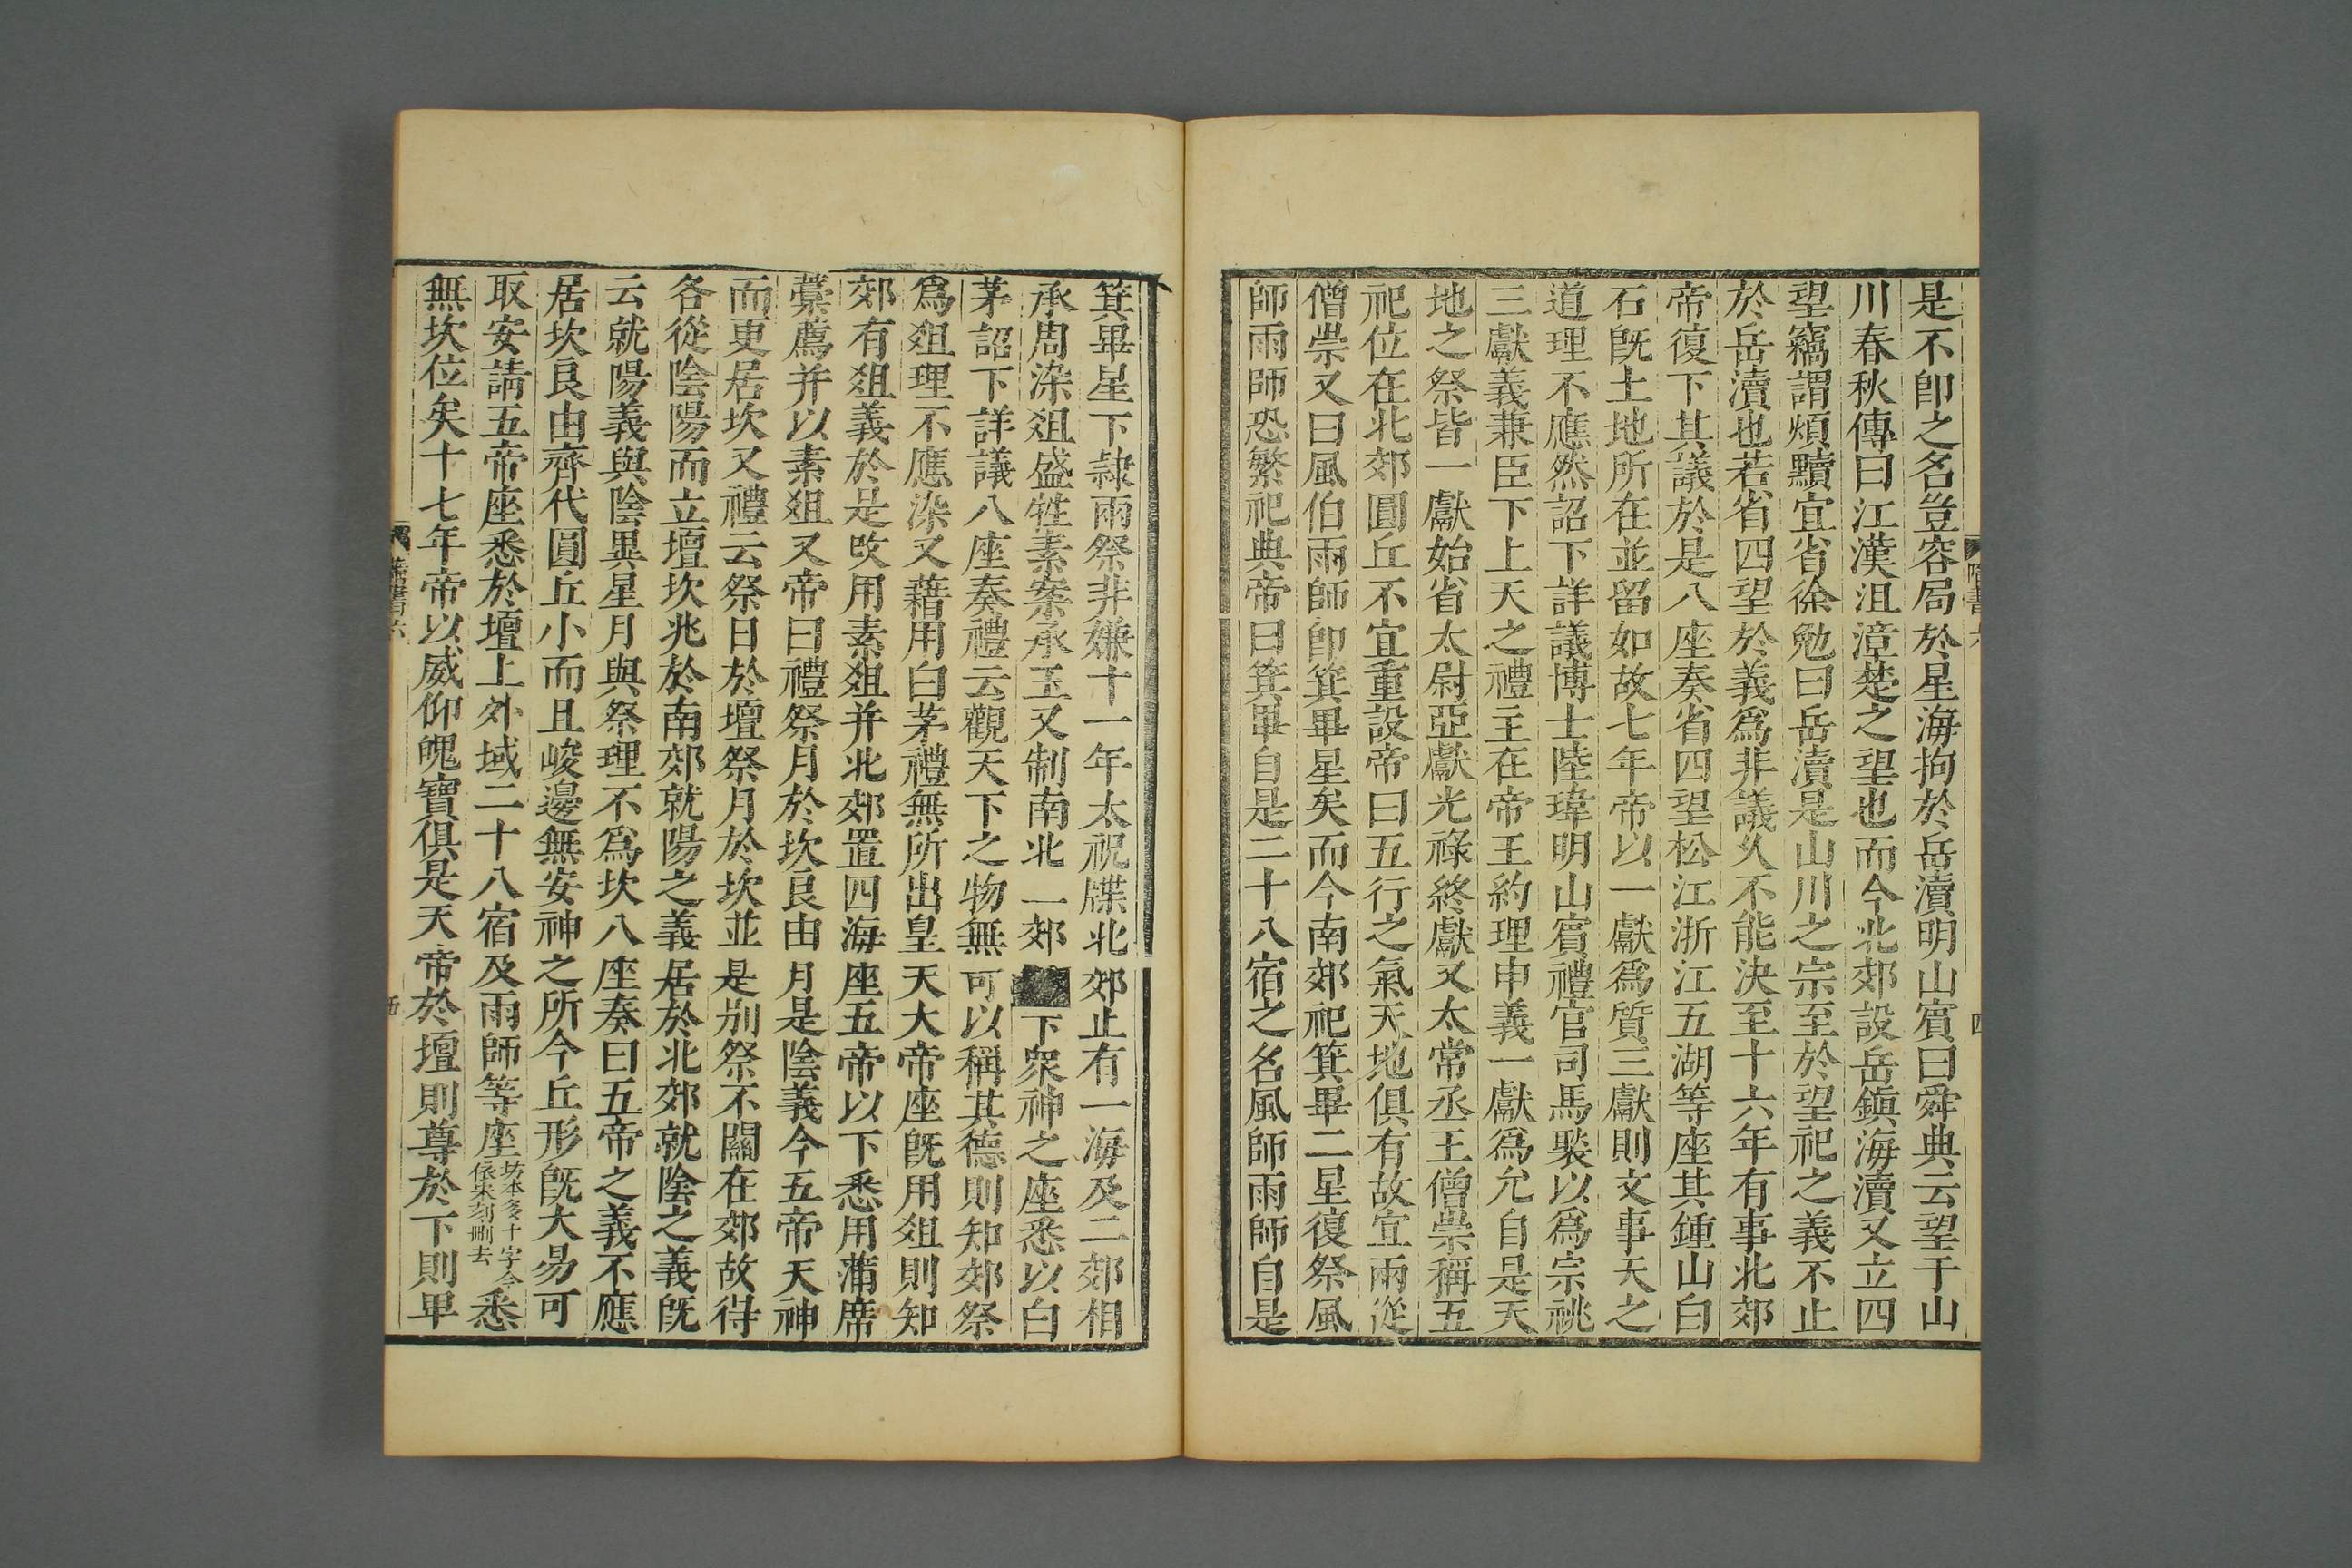 是不卽之名豈容局於星海拘於岳瀆明山賓曰舜典云望于山
川春秋傳曰江漢沮漳楚之望也而今北郊設岳鎮海瀆又立四
望竊謂煩黷宜省徐勉曰岳瀆是山川之宗至於望祀之義不止
於岳瀆也若省四望於義爲非議久不能決至十六年有事北郊
帝復下其議於是八座奏省四望松江浙江五湖等座其鍾山白
石旣土地所在並留如故七年帝以一獻爲質三獻則文事天之
道理不應然詔下詳議博士陸瑋明山賓禮官司馬褧以爲宗祧
三獻義兼臣下上天之禮主在帝王約理申義一獻爲允自是天
地之祭皆一獻始省太尉亞獻光祿終獻又太常丞王僧崇稱五
祀位在北郊圓丘不宜重設帝曰五行之氣天地俱有故宜兩從
僧崇又曰風伯雨師卽箕畢星矣而今南郊祀箕畢二星復祭風
師雨師恐繁祀典帝曰箕畢自是二十八宿之名風師雨師自是
箕畢星下隷雨祭非嫌十一年太祝牒北郊止有一海及二郊相
承周染俎盛牲素案承玉又制南北一郊下衆神之座悉以白
茅詔下詳議八座奏禮云觀天下之物無可以稱其德則知郊祭
爲俎理不應染又藉用白茅禮無所出皇天大帝座旣用俎則知
郊有俎義於是改用素俎并北郊置四海座五帝以下悉用蒲席
藁薦并以素俎又帝曰禮祭月於坎良由月是陰義今五帝天神
而更居坎又禮云祭日於壇祭月於坎並是别祭不關在郊故得
各從陰陽而立壇坎兆於南郊就陽之義居於北郊就陰之義旣
云就陽義與陰異星月與祭理不爲坎八座奏曰五帝之義不應
居坎良由齊代圓丘小而且峻邊無安神之所今丘形旣大易可
取安請五帝座悉於壇上外域二十八宿及雨師等座坊本多十字今依宋刻刪去悉
無坎位矣十七年帝以威仰魄寶俱是天帝於壇則尊於下則卑